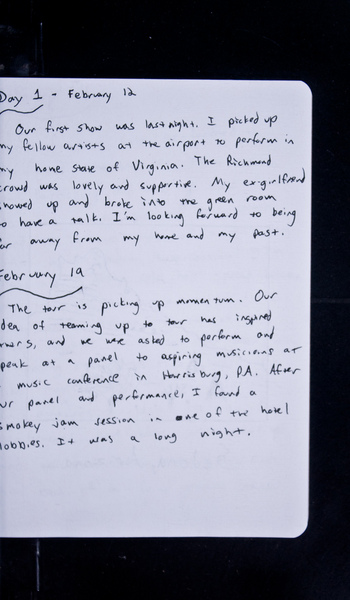 Day 1 - February 12
Our first show was last night. I picked up
my fellow artists at the airport to perform in
my home state of Virginia. The Richmond
crowd was lovely and supportive. My ex-girlfriend
showed up and broke into the green room
to have a talk. I'm looking forward to being
far away from my home and my past.
February 19
The tour is picking up momentum. Our
idea of teaming up to tour has inspired
and we were asked to perform and
speak at a panel to aspiring musicians at
music conference in Harrisburg, PA. After
our panel and performance, I found a
smokey jam session in one of the hotel
lobbies. It was a long night.